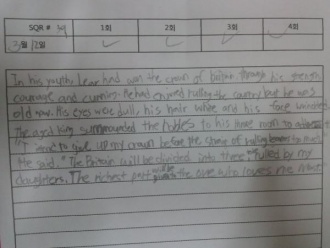 SQR # 1회 2회 3회 4회
3월 12일
In his youth, Lear had won the crown of Britain through his
courage and cunning. He had enjoyed ruling the country but he was
old now. His eyes were dull, his hair white and his face wrinkled.
The aged king summounded the nobles to his throne room to address
"I to give up my crown before the of ruling
he said. "The Britain will be divided into three, ruled by my
daughters. The richest part will be the one who loves me more